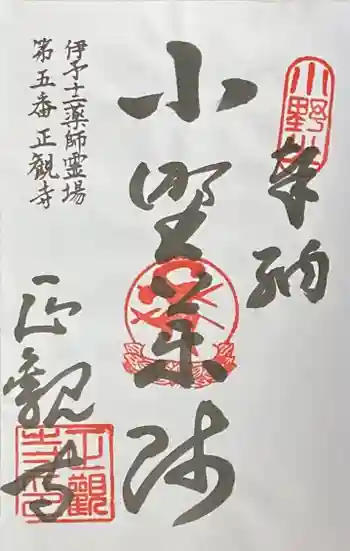 奉納
小野薬師
伊予十二薬師霊場
第五番正觀寺
正観寺
正觀寺印